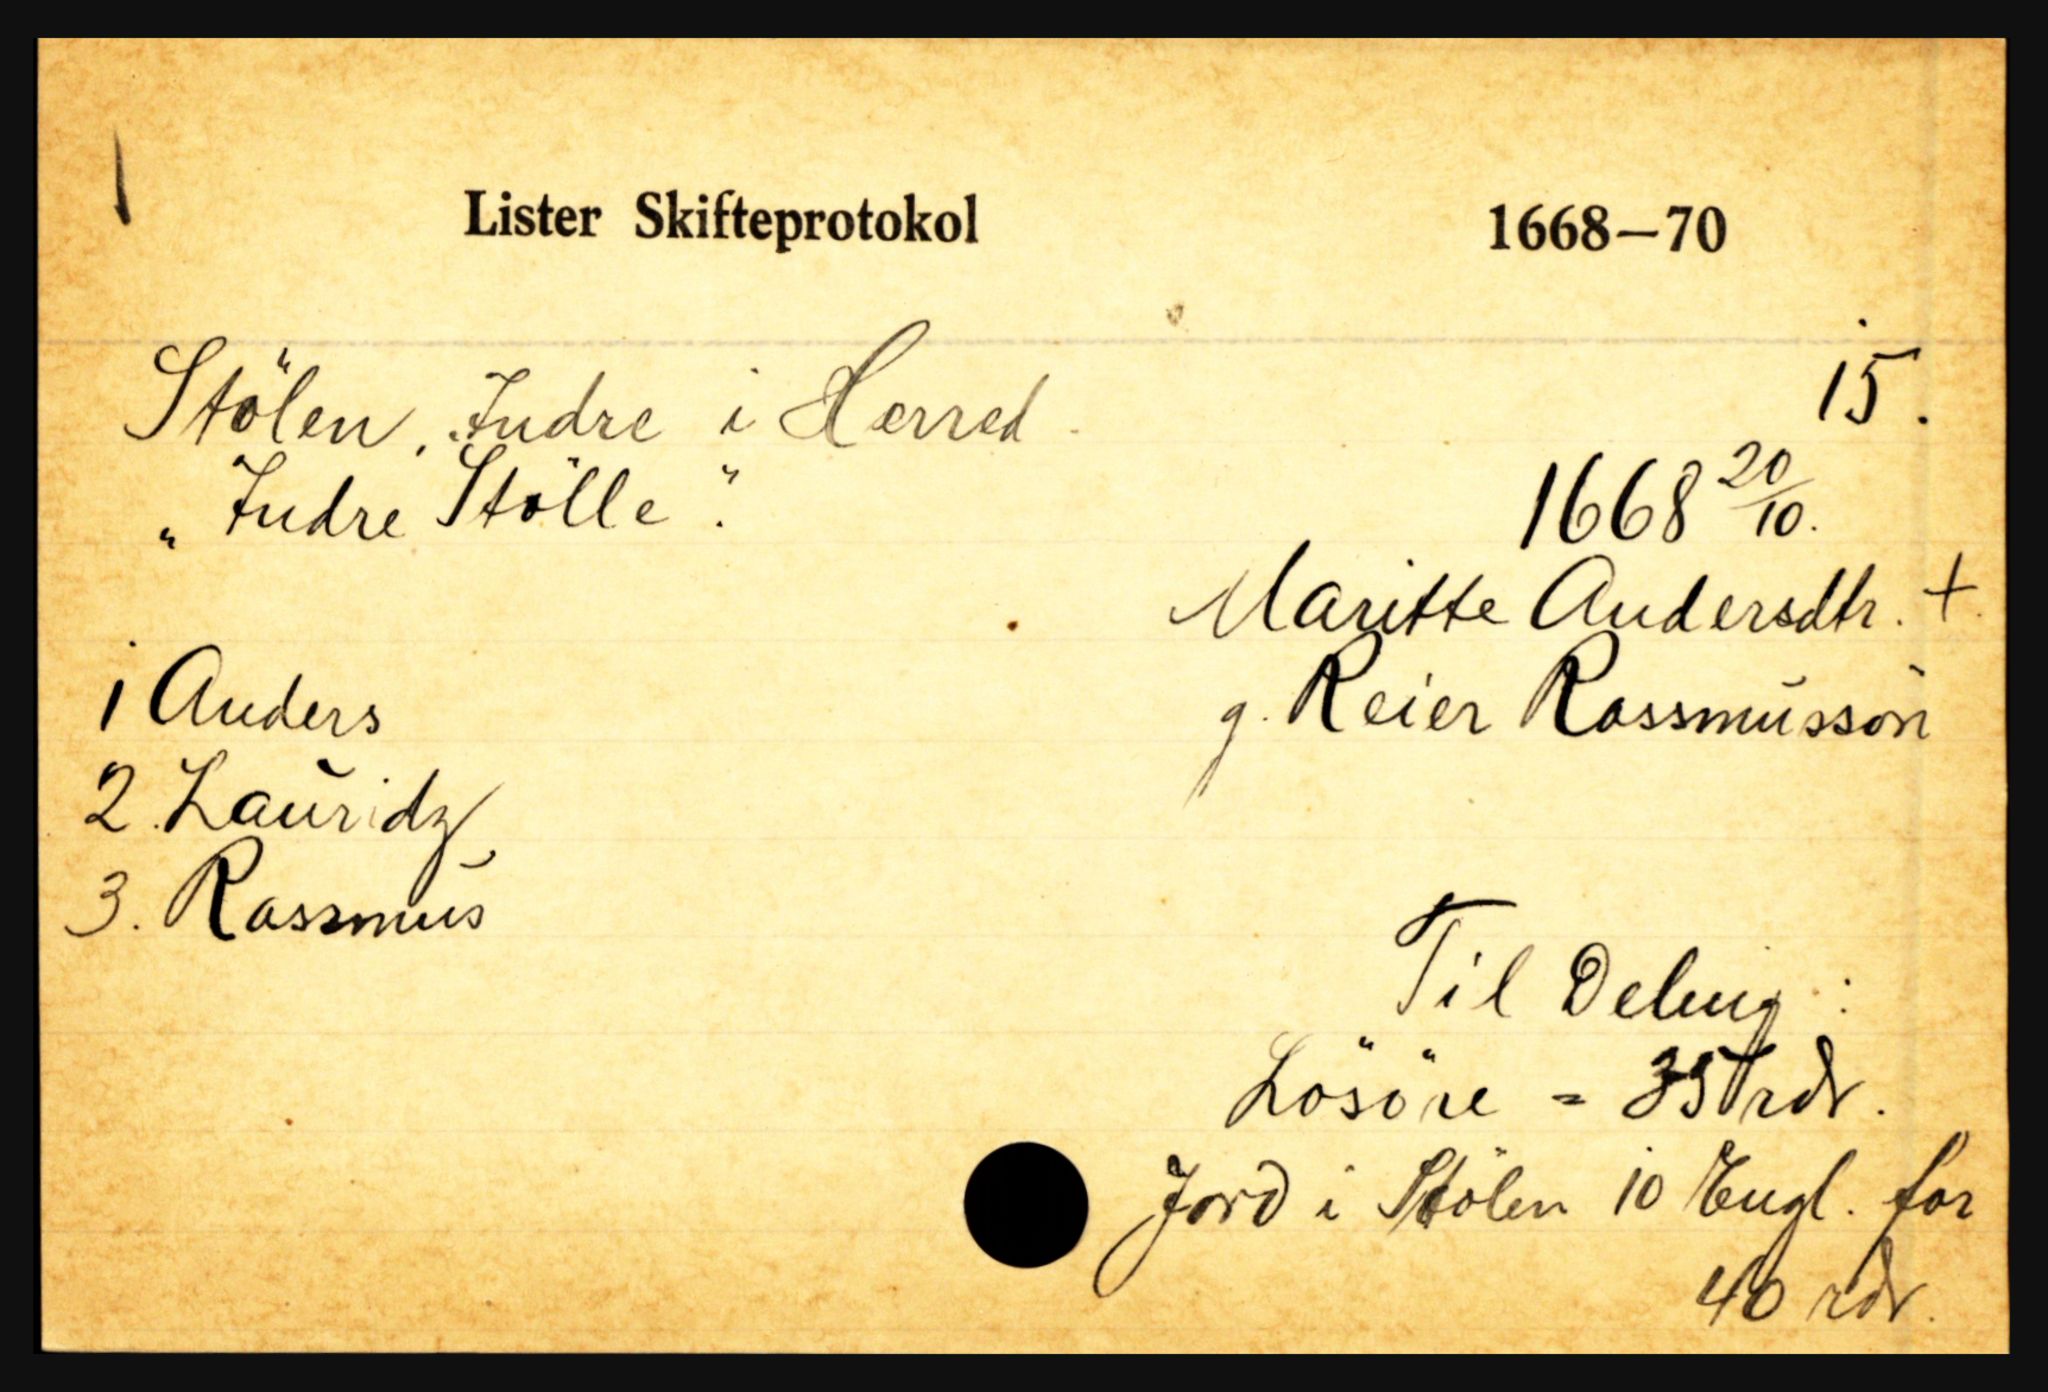 Lister Skifteprotokol 1668—70
Stölen, Indre i Herred. 15.
„Indre Stölle“. 1668 20/10.
Maritte Andersdtr. +
1 Anders g. Reier Rassmussön
2. Lauridz
3. Rassmus
Til Deling:
Lösöre = 35 rdr.
Jord i Stölen 10 Engl. for
40 rdr.